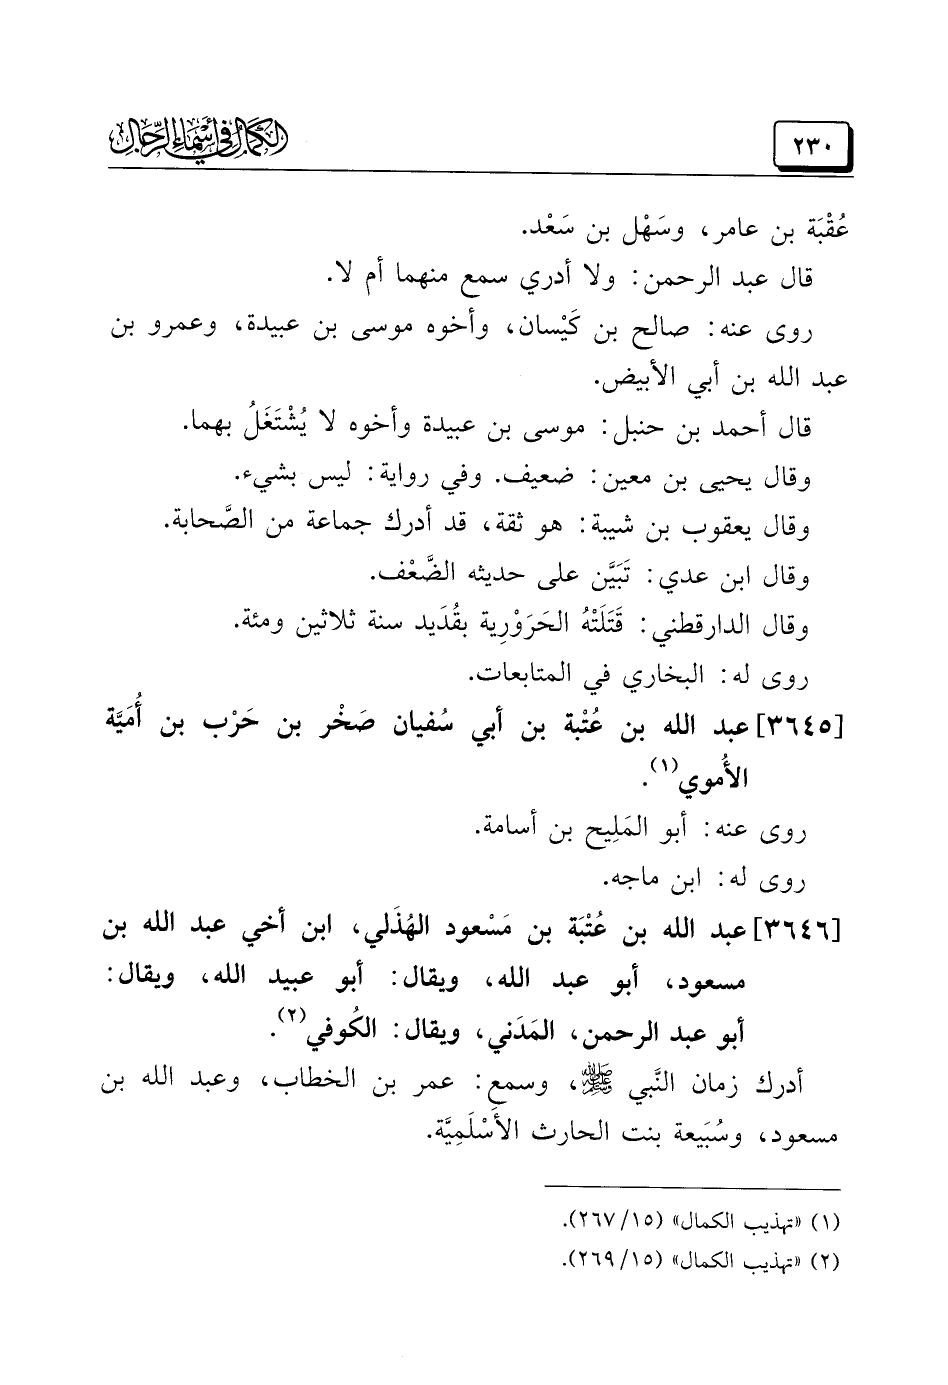 ٢٣٠
الكمال في أسماء الرجال
عُقْبَة بن عامر، وسَهْل بن سَعْد.
قال عبد الرحمن: ولا أدري سمع منهما أم لا.
روى عنه: صالح بن كَيْسان، وأخوه موسى بن عبيدة، وعمرو بن
عبد الله بن أبي الأبيض.
قال أحمد بن حنبل: موسى بن عبيدة وأخوه لا يُشْتَغَلُ بهما.
وقال يحيى بن معين: ضعيف. وفي رواية: ليس بشيء.
وقال يعقوب بن شيبة: هو ثقة، قد أدرك جماعة من الصَّحابة.
وقال ابن عدي: تَبَيَّن على حديثه الضَّعْف.
وقال الدارقطني: قَتَلَتْهُ الحَرَوْرِية بقُدَيد سنة ثلاثين ومئة.
روى له: البخاري في المتابعات.
[٣٦٤٥] عبد الله بن عُتْبة بن أبي سُفيان صَخْر بن حَرْب بن أُمَيَّة
الأُموي(١).
روى عنه: أبو المَلِيح بن أسامة.
روى له: ابن ماجه.
[٣٦٤٦] عبد الله بن عُتْبَة بن مَسْعود الهُذَلي، ابن أخي عبد الله بن
مسعود، أبو عبد الله، ويقال: أبو عبيد الله، ويقال:
أبو عبد الرحمن، المَدَني، ويقال: الكُوفي(٢).
أدرك زمان النَّبي ﷺ، وسمع: عمر بن الخطاب، وعبد الله بن
مسعود، وسُبَيعة بنت الحارث الأَسْلَمِيَّة.
(١) «تهذيب الكمال» (١٥/ ٢٦٧).
(٢) «تهذيب الكمال» (١٥/ ٢٦٩).